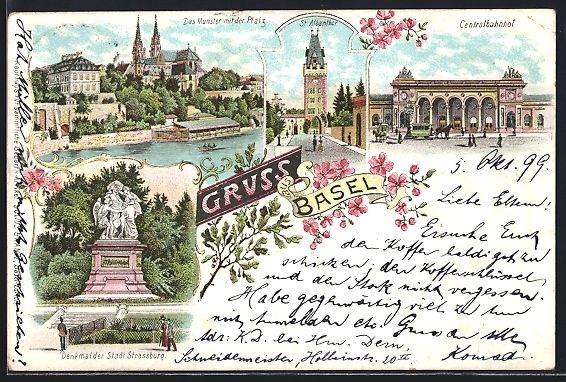 Das Münster mit der Pfalz
St. Albanthor
Centralbahnhof.
GRUSS
BASEL
Denkmal der Stadt Strassburg.
5. Okt. 99.
Liebe Eltern!
Ersuche Euch
den Koffer baldigst zu
schicken; den Kofferschlüssel
und den Stok nicht vergessen.
Habe gegenwärtig viel zu tun
mit anmelden etc. Gruss an alle
Adr. K. D. bei Hrn. Dern, Konrad.
Schneidermeister, Holbeinstr.